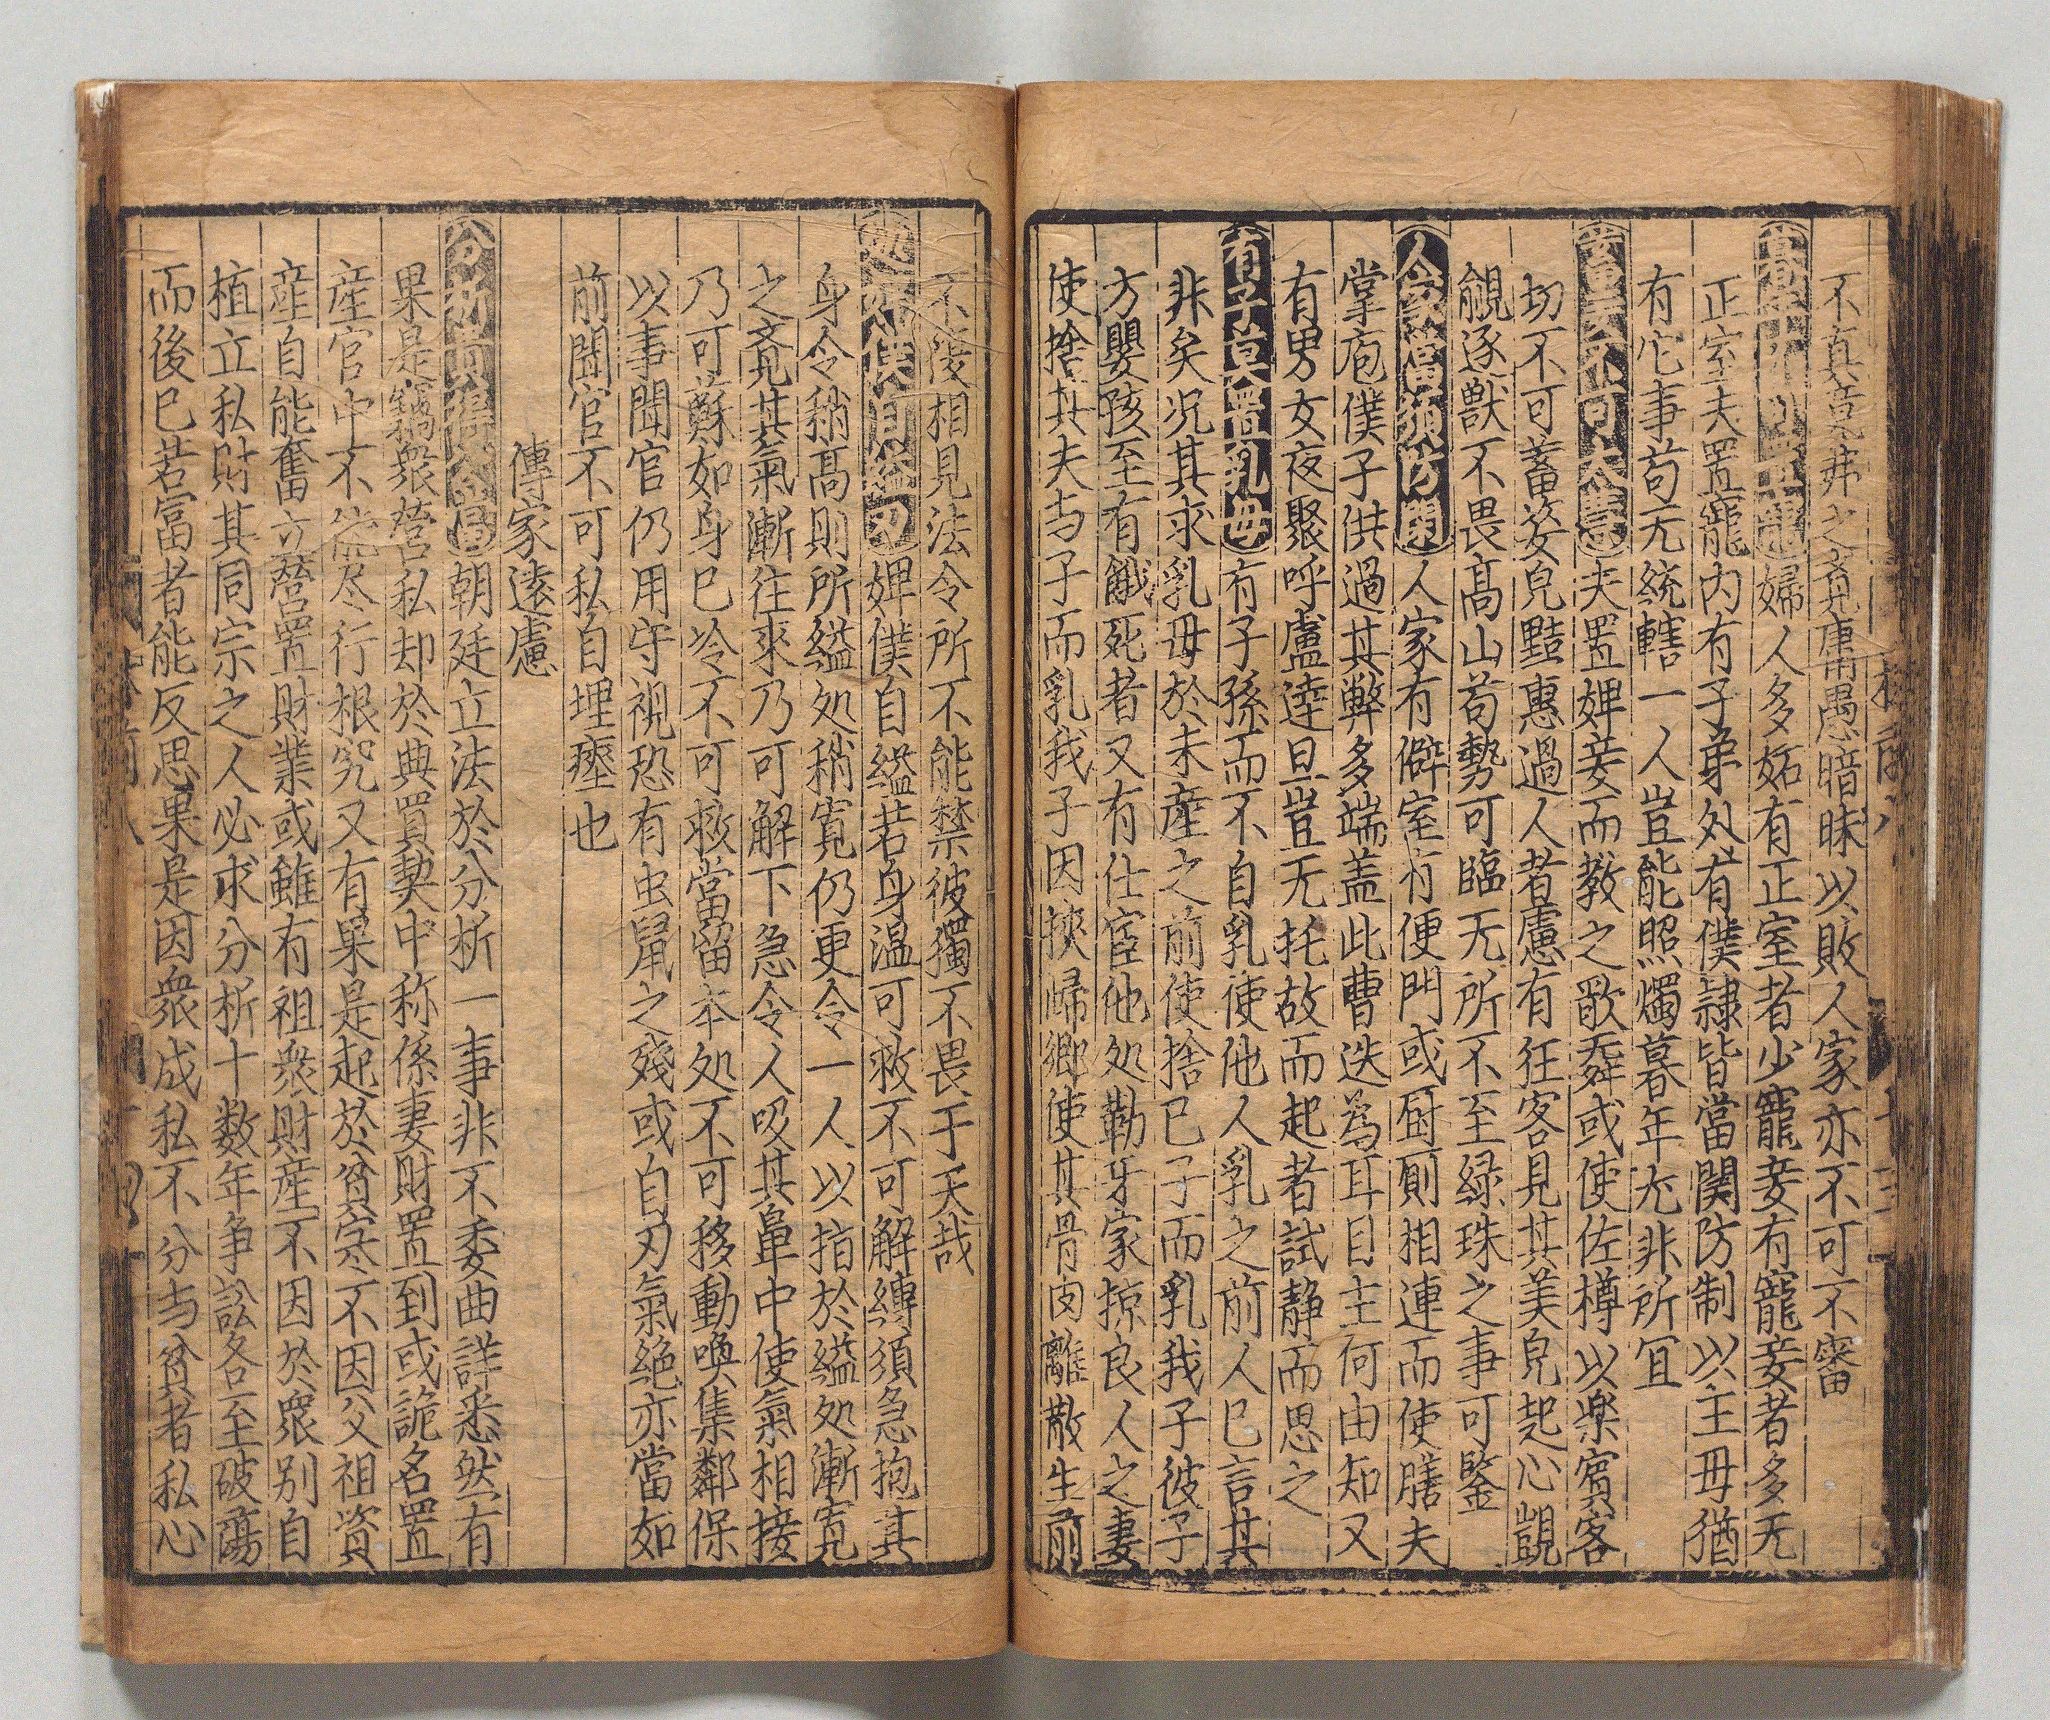 不真竟弗之覚庸愚暗昧以敗人家亦不可不審
婦人多妬有正室者少寵妾有寵妾者多无
正室夫置寵内有子弟外有僕隷皆當関防制以主母猶
有它事苟无統轄一人豈能照燭暮年尤非所宜
夫置婢妾而教之歌舞或使佐樽以樂賓客
切不可蓄姿皃黠惠過人者慮有狂客見其美皃起心覬
覦逐獸不畏髙山苟勢可臨无所不至緑珠之事可鑒
人家當須防閑 人家有僻室有便門或厨厠相連而使膳夫
掌庖僕子供過其弊多端盖此曹迭為耳目主何由知又
有男女夜聚呼盧達旦豈无托故而起者試静而思之
有子莫置乳母 有子孫而不自乳使他人乳之前人已言其
非矣况其求乳母於未産之前使捨已子而乳我子彼子
方嬰孩至有餓死者又有仕宦他処勒牙家掠良人之妻
使捨其夫与子而乳我子因挾帰郷使其骨肉離散生前
不復相見法令所不能禁彼獨不畏于天哉
婢僕自縊若身温可救不可解縛須急抱其
身令稍髙則所縊処稍寛仍更令一人以指於縊処漸寛
之覚其氣漸往來乃可解下急令人吸其鼻中使氣相接
乃可蘇如身已冷不可救當留本処不可移動喚集鄰保
以事聞官仍用守視恐有虫鼠之殘或自刃氣絶亦當如
前聞官不可私自埋瘞也
傳家遠慮
朝廷立法於分析一事非不委曲詳悉然有
果是竊衆營私却於典買契中称係妻財置到或詭名置
産官中不能尽行根究又有果是起於貧寒不因父祖資
産自能奮立營置財業或雖有祖衆財産不因於衆别自
植立私財其同宗之人必求分析十数年争訟各至破蕩
而後已若富者能反思果是因衆成私不分与貧者私心